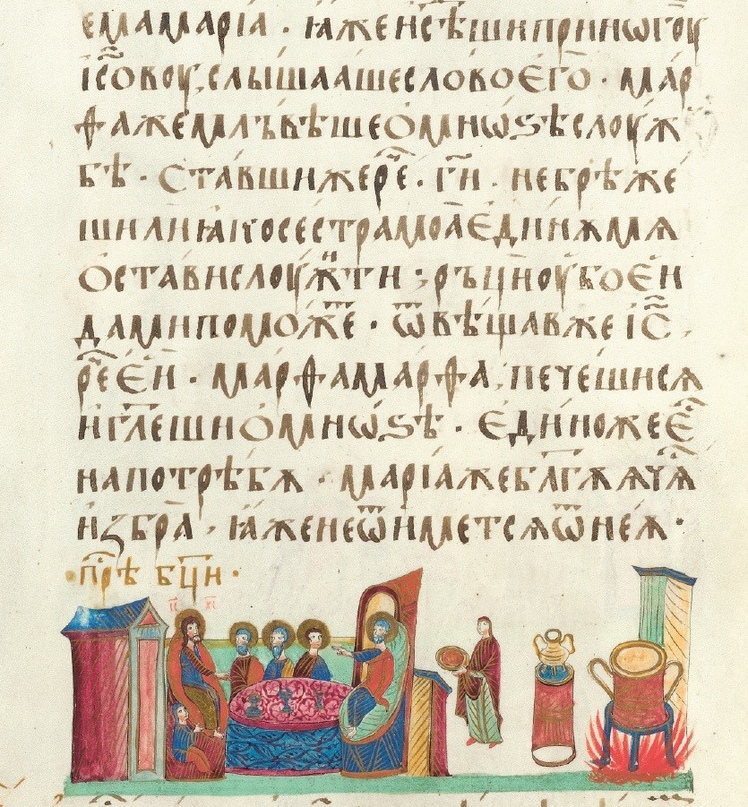 емамарїа · ꙗженсѣшипринѡгоу
їс҃овоу, слышаашесловоєго · мар
ѳажемлъвѣшеомнѡꙃѣслоуж
бѣ · ставшижере҃ · гн҃ · небрѣже
шилиꙗкосестрамоаєдинѫмѧ
оставислоужⷤти : рьциоубоєи
дамипоможе · ѿвѣщавжеїс҃ ·
ре҃єи · марѳамарѳа, печешисѧ
игл҃ешиомнѡꙃѣ · єдиножеє҃
напотрѣбѫ · марїажебл҃гѫѧчѫ
избра , ꙗженеѿиметсѧѿнеѫ ·
· пр҃ѣ бц҃и ·
І҃С Х҃С